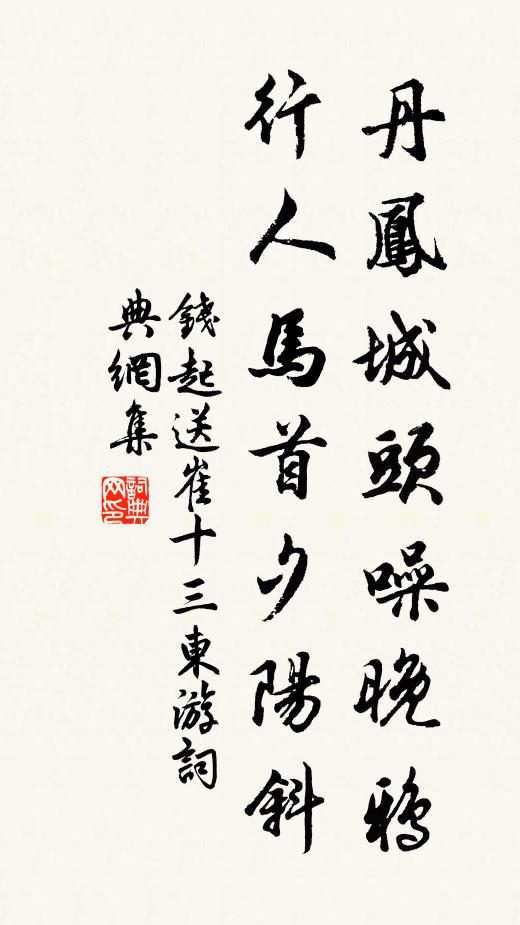 丹鳳城頭噪晚鴉
行人馬首夕陽斜
錢起送崔十三東游詞
典網集
詞典网印